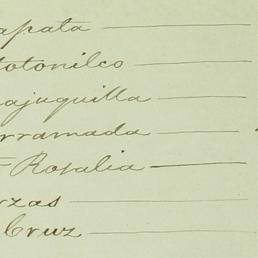 apata
totonilco
ajuquilla
rramada
Rosalia
rzas
Cruz